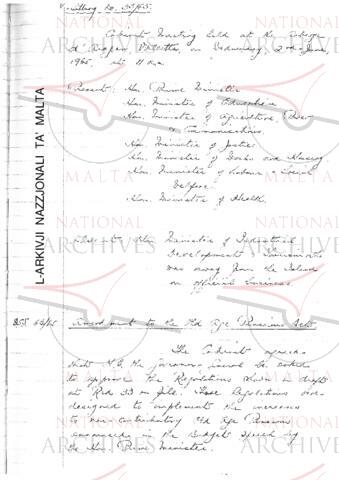 Meeting No. 35/65.
Cabinet Meeting held at the Auberge
d'Aragon, Valletta, on Wednesday, 2nd June,
1965, at 11 a.m.
Present: Hon. Prime Minister
Hon. Minister of Education
Hon. Minister of Agriculture, Power
& Communications.
Hon. Minister of Justice
Hon. Minister of Works and Housing
Hon. Minister of Labour & Social
Welfare
Hon. Minister of Health.
Absent: Hon. Minister of Industrial
Development & Tourism who
was away from the Island
on official business.
355 65/65 Amendment to the Old Age Pensions Act
The Cabinet agreed
that H.E. the Governor General be asked
to approve the Regulations which in draft
at Red 33 in file. These Regulations were
designed to implement the increases
to non contributory Old Age Pensions
announced in the Budget Speech by
the Hon. Prime Minister.
L-ARKIVJI NAZZJONALI TA' MALTA
NATIONAL
ARCHIVES
MALTA